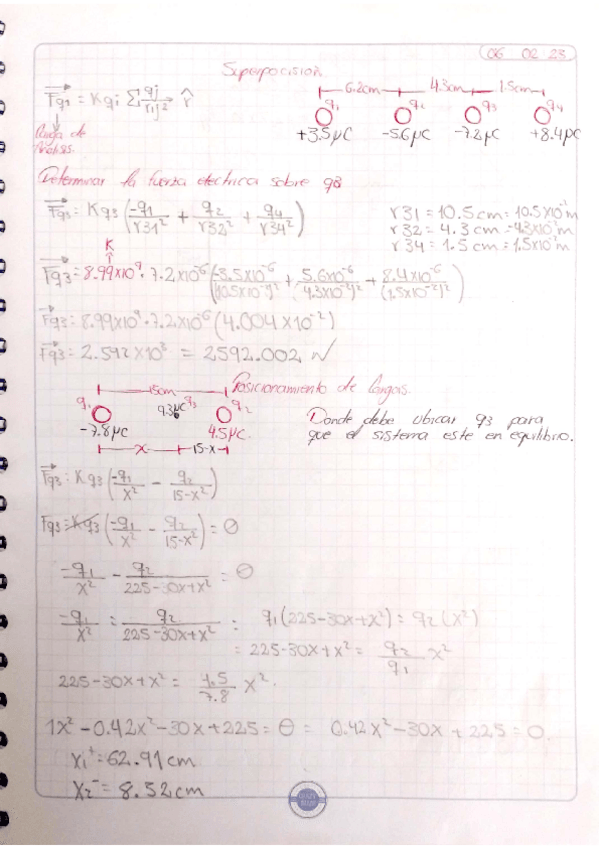 06 02 23
Superpocision
Fq₁ = Kqi Σ qj/rij² → r̂
6.2cm 4.3cm 1.5cm
q₁ q₂ q₃ q₄
+3.5μC -5.6μC -7.2μC +8.4μC
de
Determinar la fuerza electrica sobre q3
Fq₃ = Kq₃(-q₁/r31² + q₂/r32² + q₄/r34²)
r31 = 10.5cm = 10.5x10⁻²m
r32 = 4.3 cm = 4.3x10⁻²m
r34 = 1.5 cm = 1.5x10⁻²m
K
Fq₃ = 8.99x10⁹ · 7.2x10⁻⁶(-3.5x10⁻⁶/(10.5x10⁻²)² + 5.6x10⁻⁶/(4.3x10⁻²)² + 8.4x10⁻⁶/(1.5x10⁻²)²)
Fq₃ = 8.99x10⁹ · 7.2x10⁻⁶(4.004x10⁻²)
Fq₃ = 2.592x10³ = 2592.002 N
Posicionamiento de
15cm
q₁ q₃ q₂
-7.8μC 9.3μC 4.5μC
x 15-x
Donde debe ubicar q3 para
que el sistema este en equilibrio.
Fq₃ = Kq₃(-q₁/x² - q₂/15-x²)
Fq₃ = Kq₃(-q₁/x² - q₂/15-x²) = 0
-q₁/x² - q₂/225-30x+x² = 0
-q₁/x² = q₂/225-30x+x² = q₁(225-30x+x²) = q₂(x²)
= 225-30x+x² = q₂/q₁ x²
225-30x+x² = 4.5/7.8 x².
1x²-0.42x²-30x+225=0 = 0.42x²-30x+225=0.
x₁⁺=62.91cm
x₂⁻=8.52cm